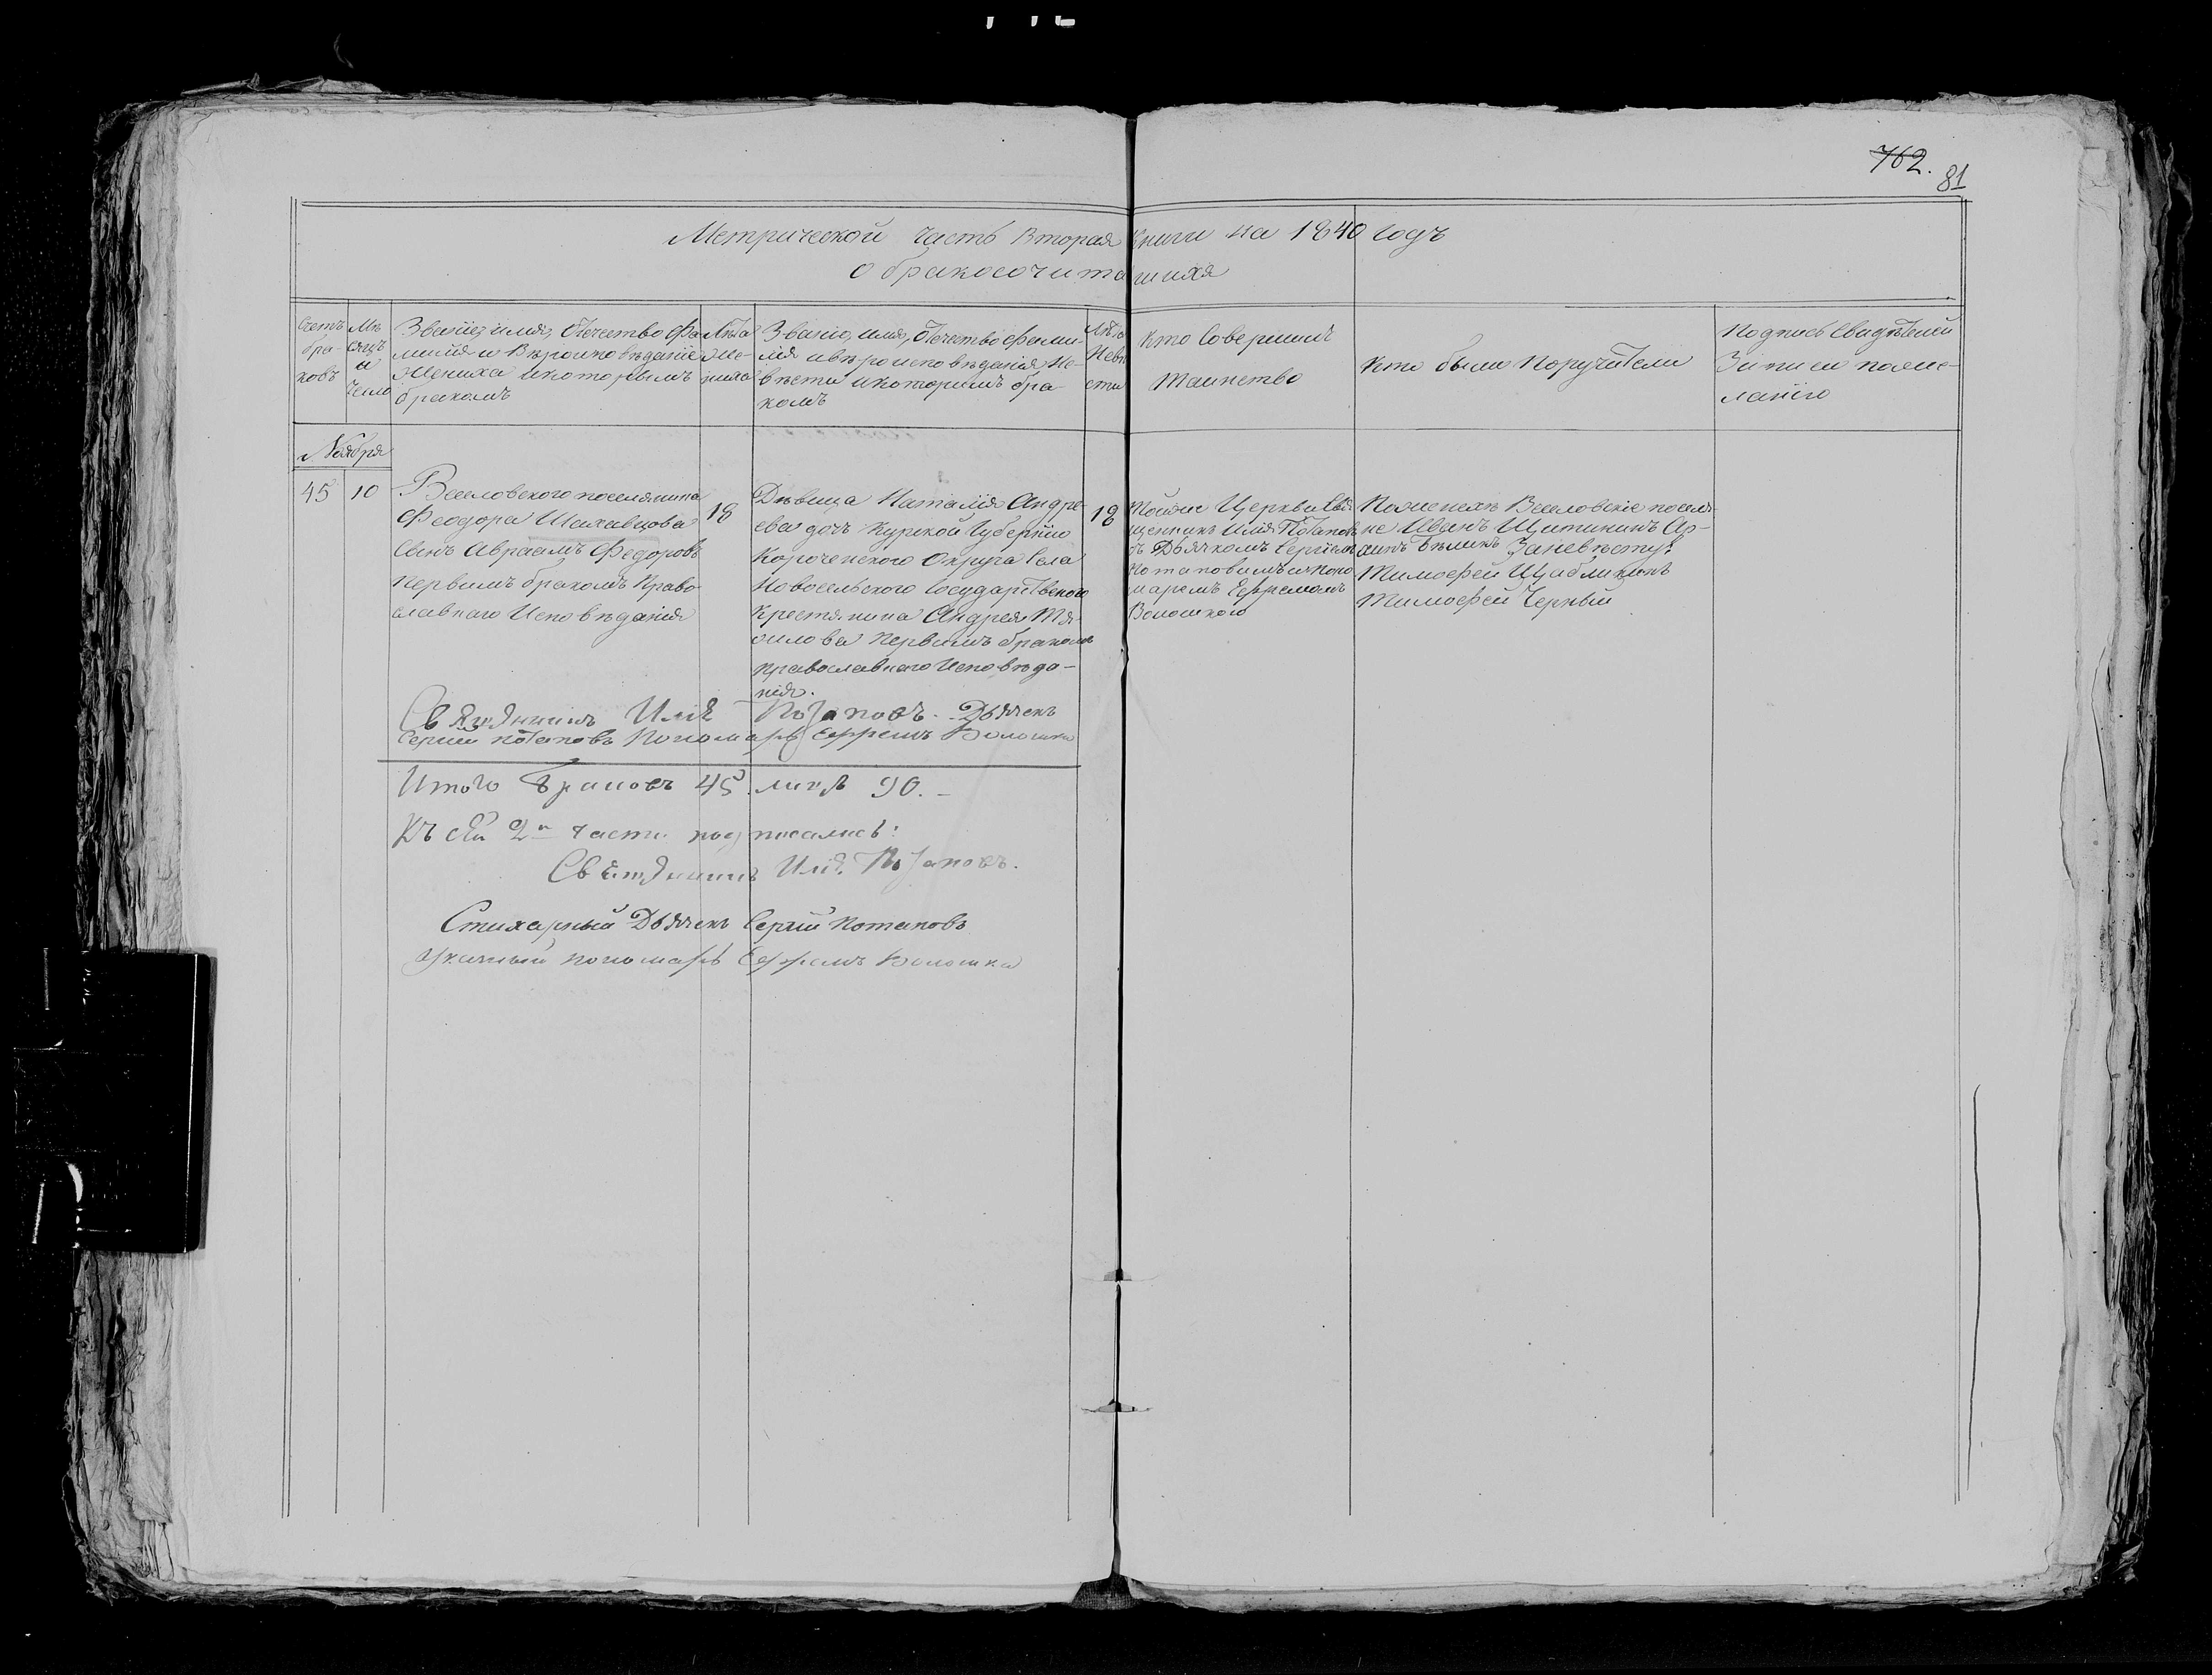 762.
81
Метрической часть Вторая Книги на 1840 годъ
о бракосочитавшихся
Счетъ браковъ
Мѣсяцъ и Число
Званіе, имя, Отечество Фа
милія и Вѣроисповѣданіе
Жениха и которымъ
бракомъ
Лѣта
Же-
ниха
Званіе, имя, Отечество Фами-
лія и вѣроисповѣданія Не-
вѣсти и которимъ бра
комъ
Лѣта
Невѣ
сты
Кто Совершилъ
Таинство
Кто были Поручители
Подпись Свидѣтелей
Записи по жела-
лаиію
Ноября
45
10
Веселовского поселянина
Феодора Шахавцова
Сынъ Авраамъ Федоровъ
Первымъ бракомъ Право
славнаго Исповѣданія
18
Дѣвица Наталія Андре
ева дочь Курской Губерніи
Короченского Округа Села
Новосельского Государственого
Крестянина Андрея
Первымъ бракомъ
Православнаго Исповѣда-
нія.
18
Тоейже Церкви Свя
щенникъ Илія Потаповъ
съ Дьячкомъ Сергіемъ
Потаповымъ и Поно
маремъ Ефремомъ
Волошкою
По женихѣ Веселовскіе поселя
не Иванъ Щитининъ
Бѣликъ За невѣсту
Тимофей Щабликинъ
Тимофей Черный
Священникъ Илія Потаповъ. Дьячекъ
Сергій Потаповъ Пономарь Ефремъ Волошка
Итого Браковъ 45. лицъ 90.-
Къ сей 2й части подписались:
Священникъ Илія Потаповъ.
Стихарный Дьячекъ Сергій Потаповъ
Указный пономарь Ефремъ Волошка